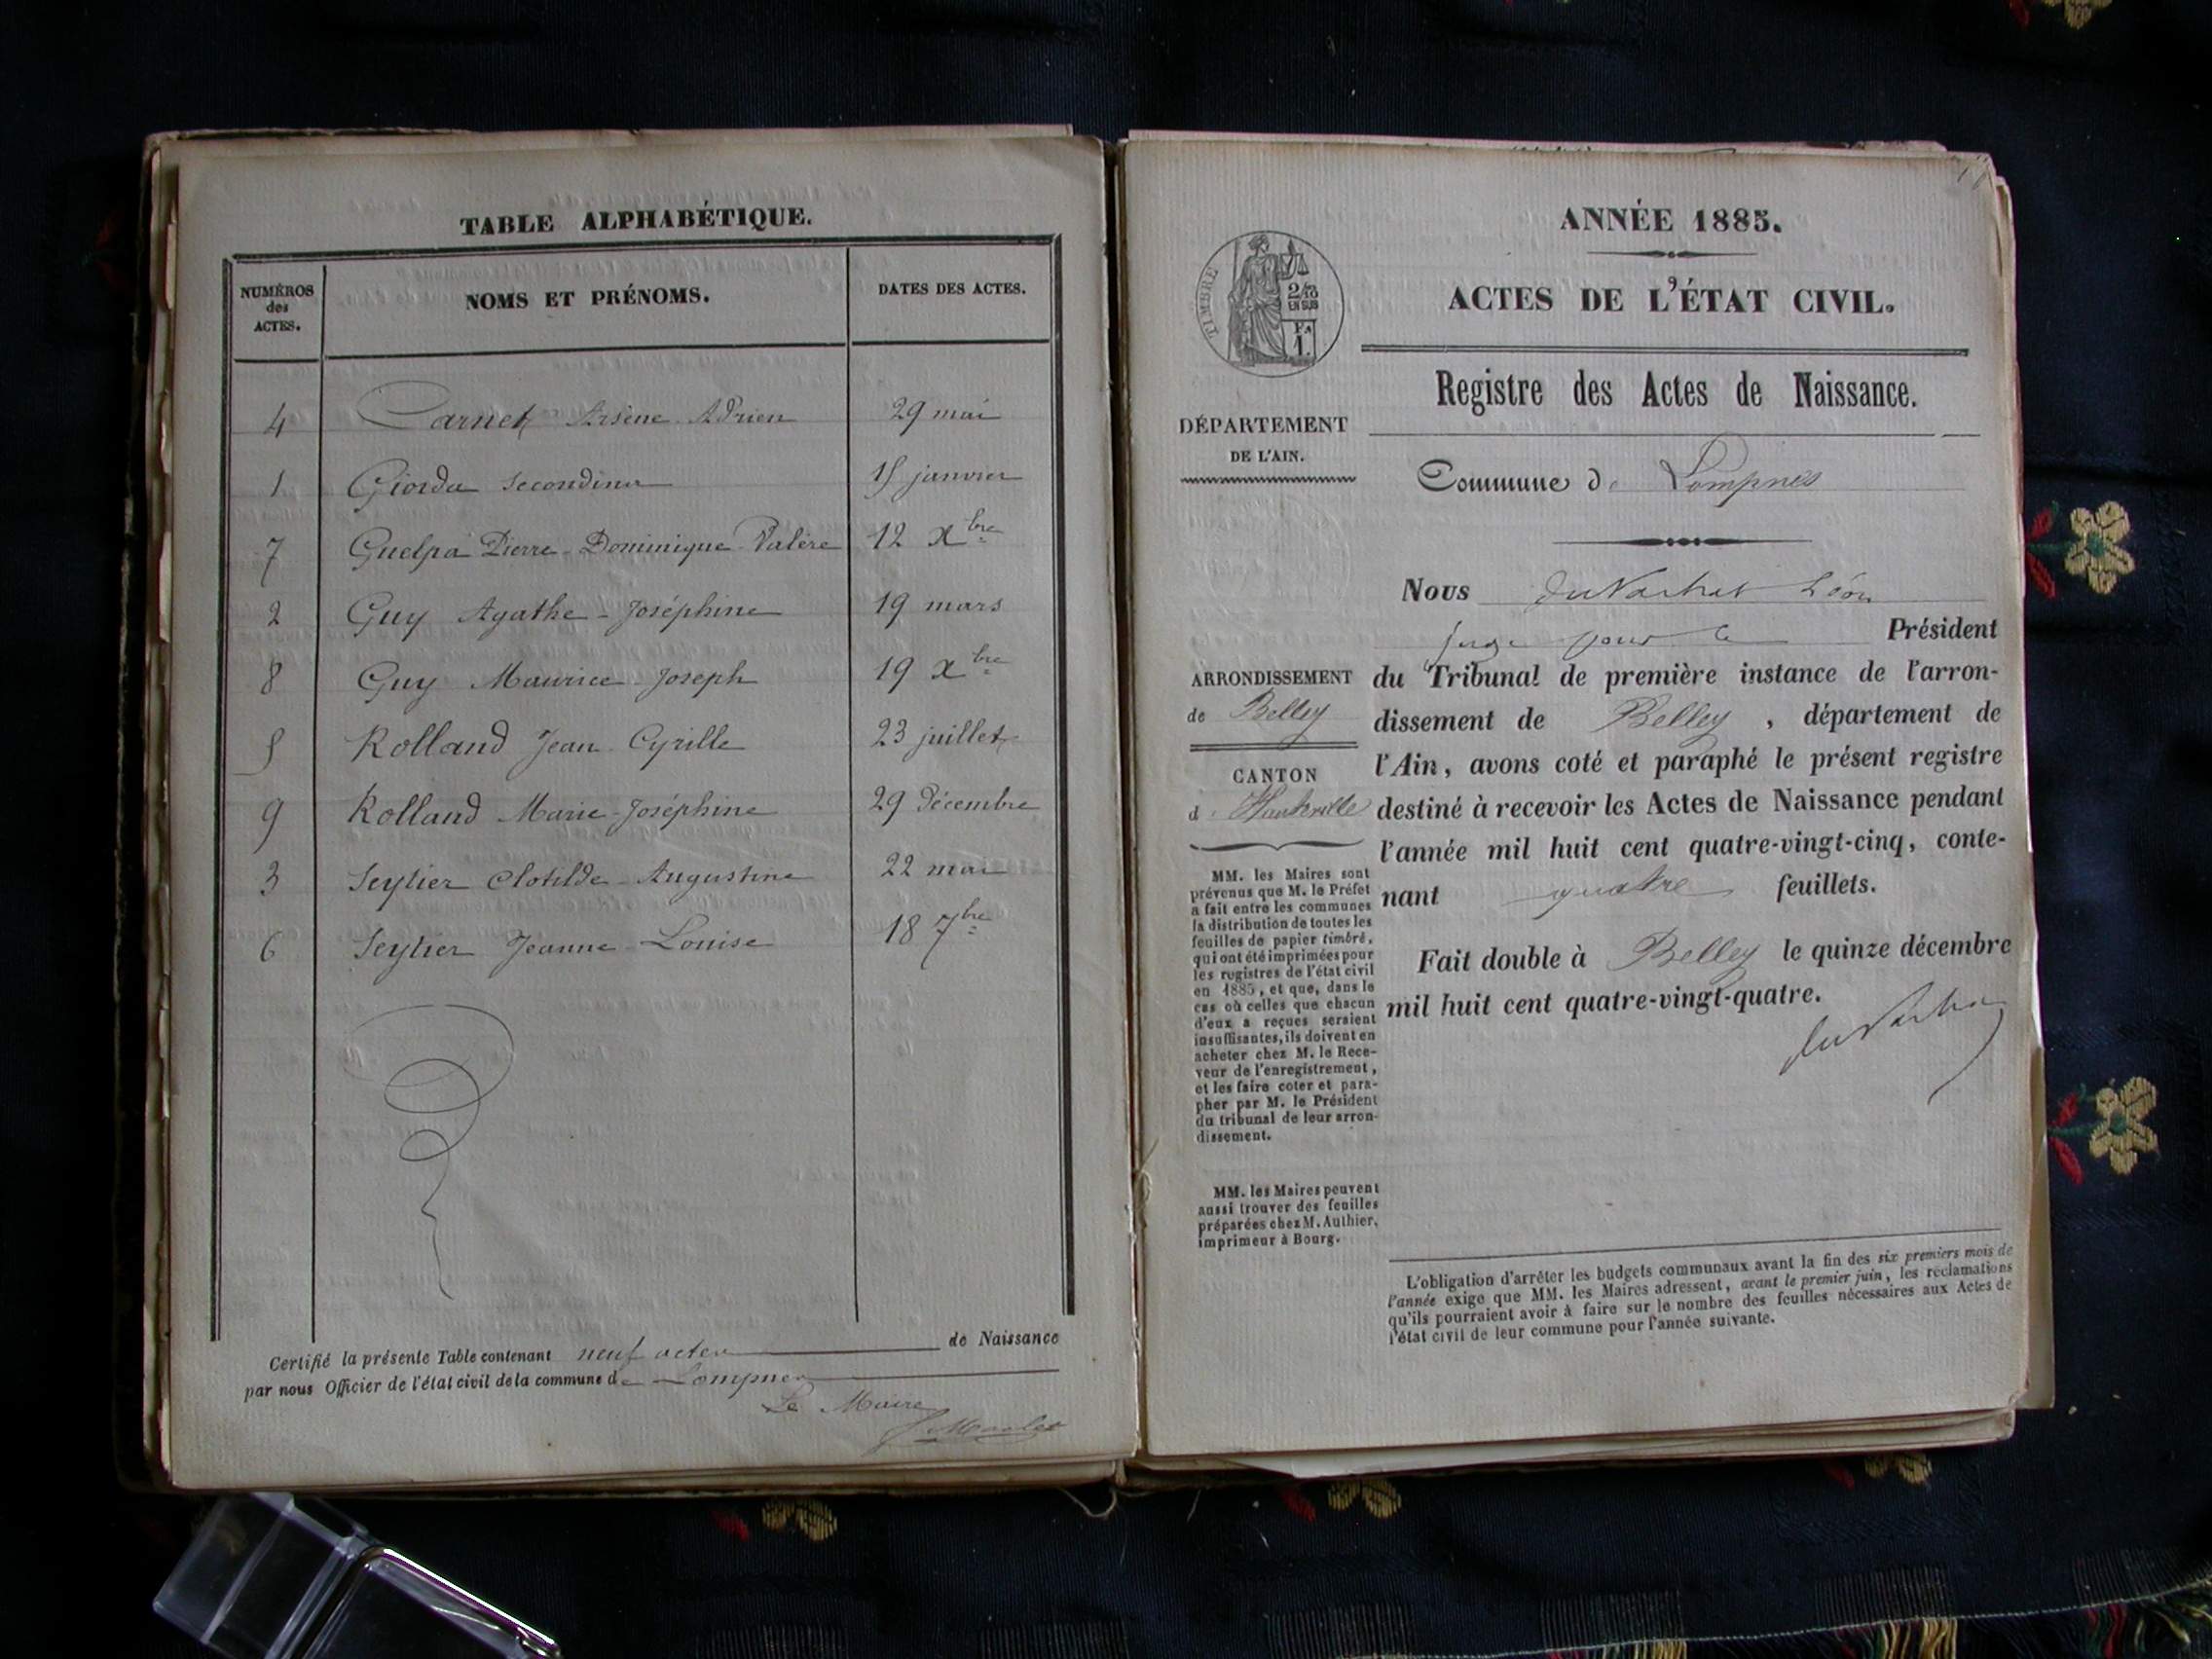 TABLE ALPHABÉTIQUE.
NUMÉROS des ACTES.
NOMS ET PRÉNOMS.
DATES DES ACTES.
4 Carnet Arsène Adrien 29 mai
1 Giorda Secondina 15 janvier
7 Guelpa Pierre-Dominique-Valère 12 Xbre
2 Guy Agathe-Joséphine 19 mars
8 Guy Maurice Joseph 19 Xbre
5 Rolland Jean Cyrille 23 juillet
9 Rolland Marie-Joséphine 29 décembre
3 Seytier Clotilde-Augustine 22 mai
6 Seytier Jeanne-Louise 18 7bre
Certifié la présente Table contenant neuf actes de Naissance
par nous Officier de l'état civil de la commune de Lompnes
Le Maire
ANNÉE 1885.
ACTES DE L'ÉTAT CIVIL.
TIMBRE
2/10
EN SUS
1.
Registre des Actes de Naissance.
DÉPARTEMENT
DE L'AIN.
Commune de Lompnes
Nous Léon
juge pour le Président
ARRONDISSEMENT
de Belley
CANTON
d'Hauteville
du Tribunal de première instance de l'arron-
dissement de Belley, département de
l'Ain, avons coté et paraphé le présent registre
destiné à recevoir les Actes de Naissance pendant
l'année mil huit cent quatre-vingt-cinq, conte-
nant quatre feuillets.
Fait double à Belley le quinze décembre
mil huit cent quatre-vingt-quatre.
MM. les Maires sont
prévenus que M. le Préfet
a fait entre les communes
la distribution de toutes les
feuilles de papier timbré,
qui ont été imprimées pour
les registres de l'état civil
en 1885, et que, dans le
cas où celles que chacun
d'eux a reçues seraient
insuffisantes, ils doivent en
acheter chez M. le Rece-
veur de l'enregistrement,
et les faire coter et para-
pher par M. le Président
du tribunal de leur arron-
dissement.
MM. les Maires peuvent
aussi trouver des feuilles
préparées chez M. Authier,
imprimeur à Bourg.
L'obligation d'arrêter les budgets communaux avant la fin des six premiers mois de
l'année exige que MM. les Maires adressent, avant le premier juin, les réclamations
qu'ils pourraient avoir à faire sur le nombre des feuilles nécessaires aux Actes de
l'état civil de leur commune pour l'année suivante.